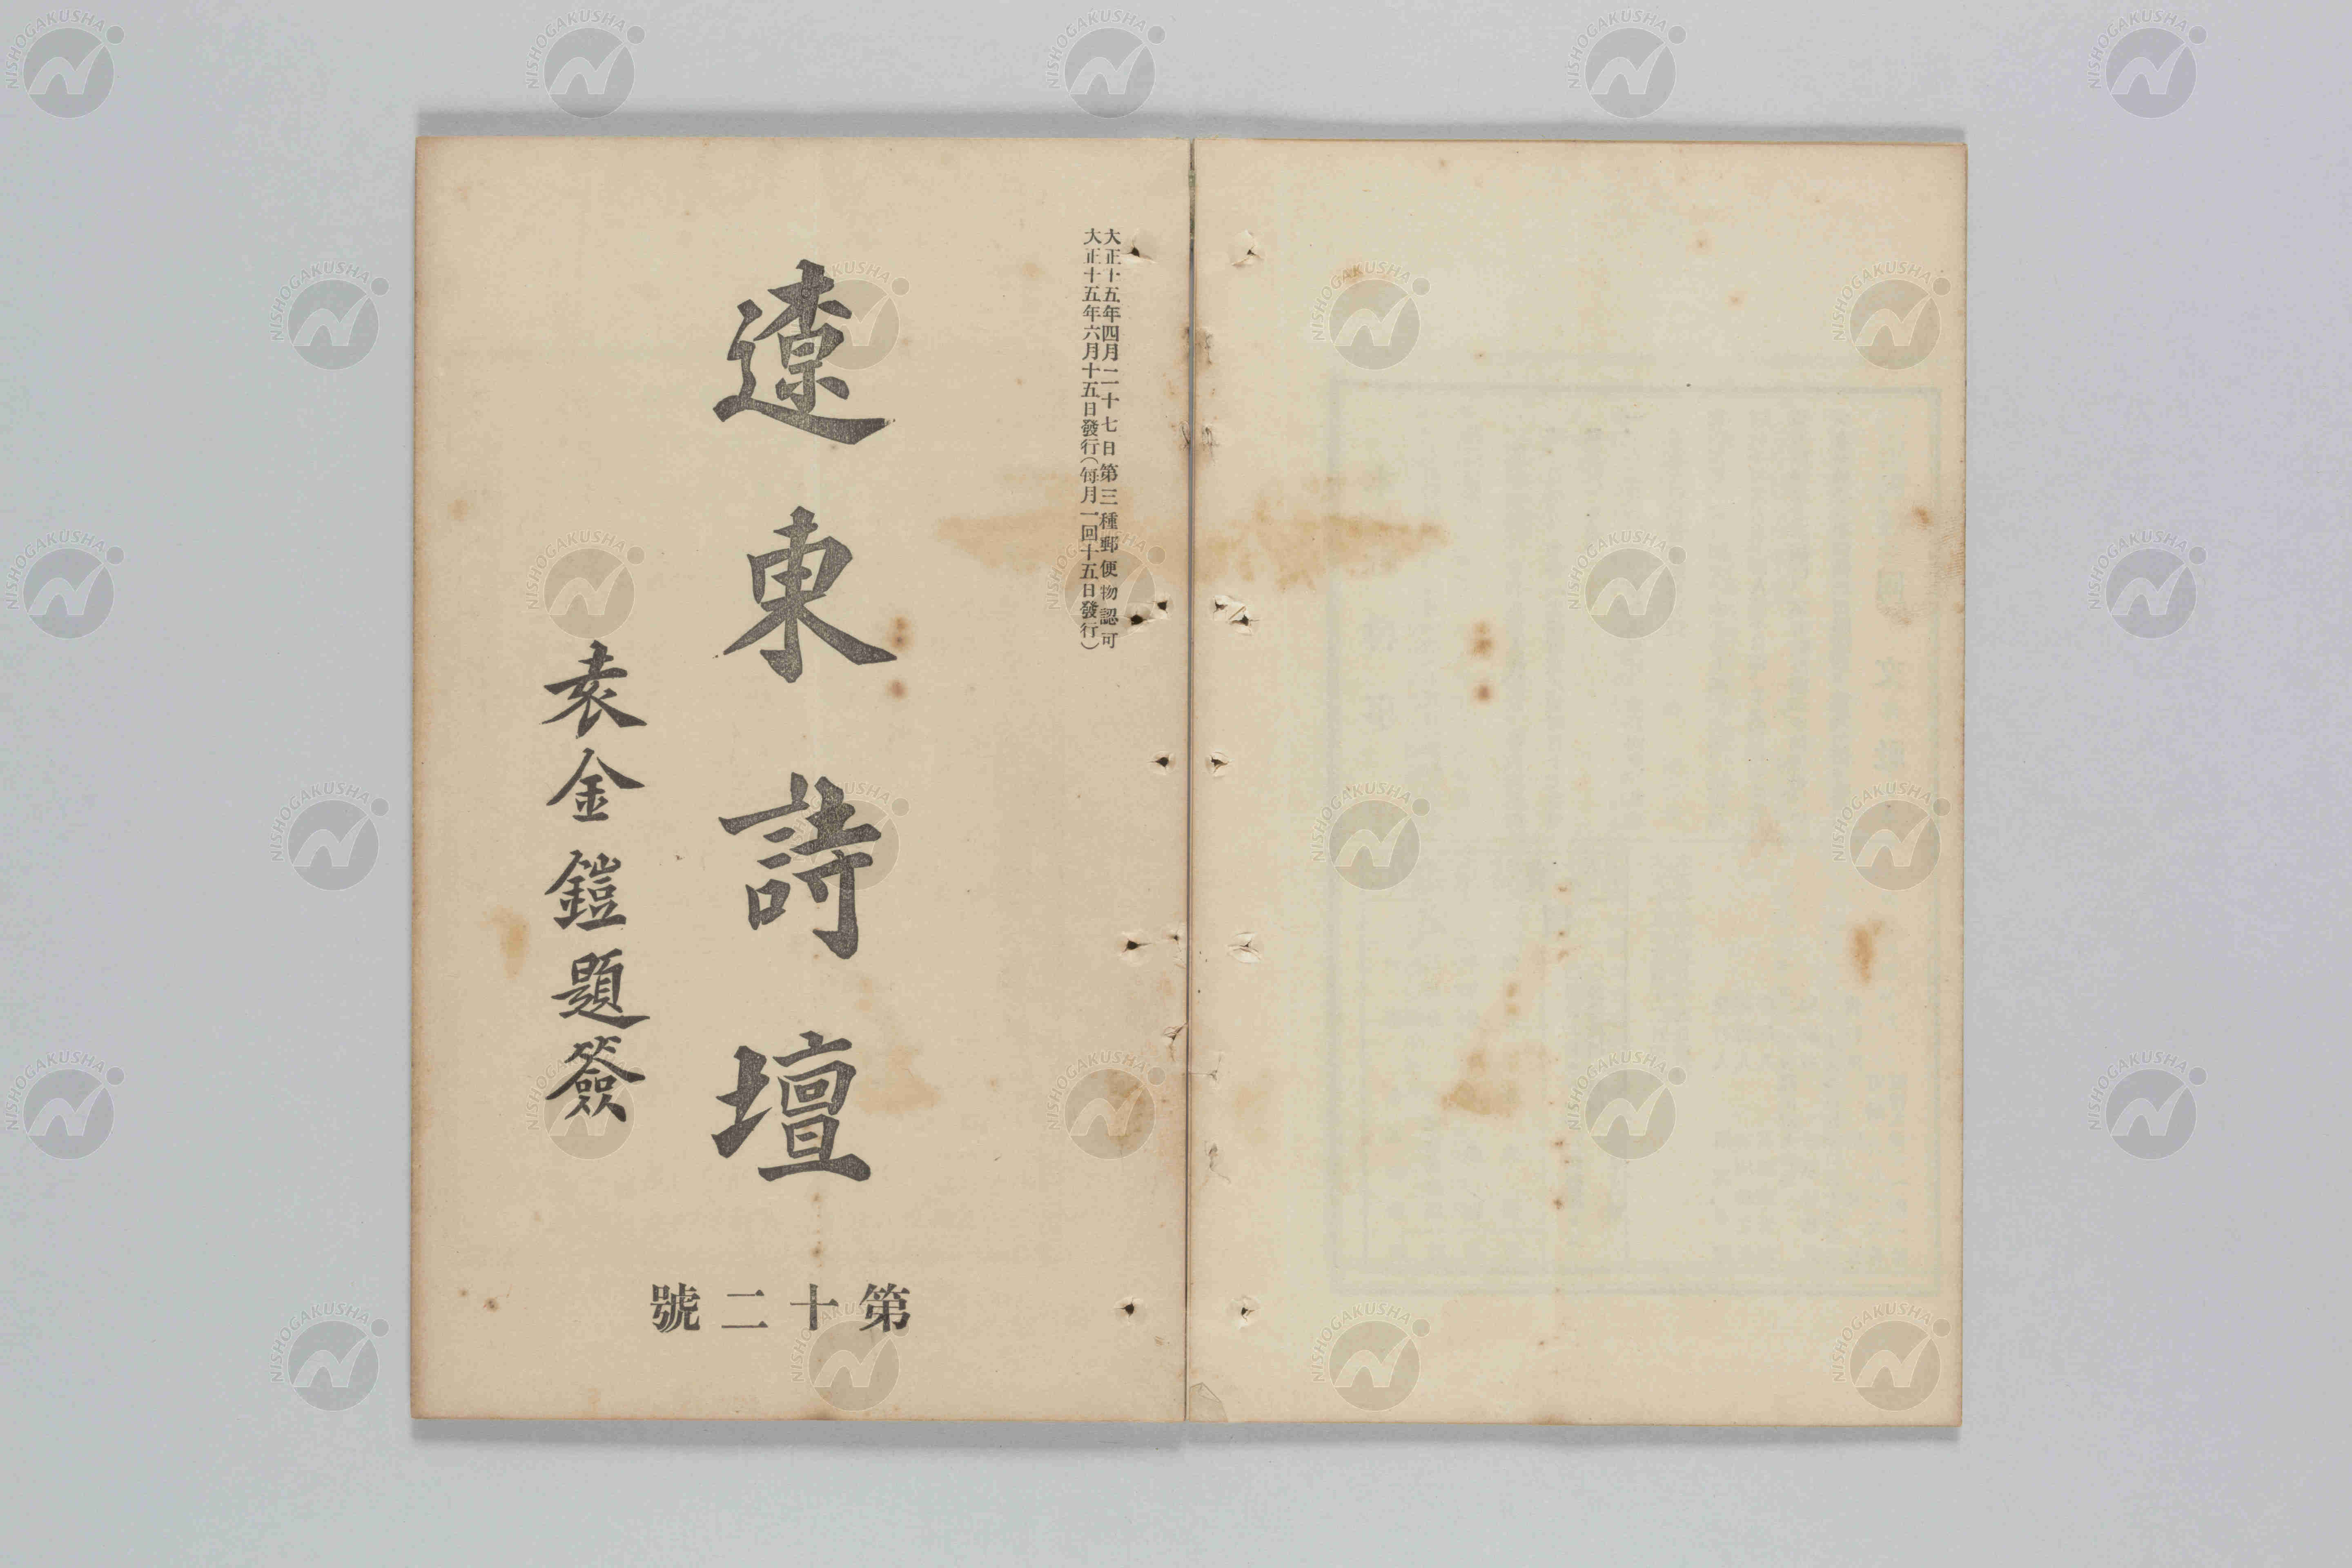 大正十五年四月二十七日第三種郵便物認可
大正十五年六月十五日發行(每月一回十五日發行)
遼東詩壇
袁金鎧題簽
第十二號
NISHOGAKUSHA